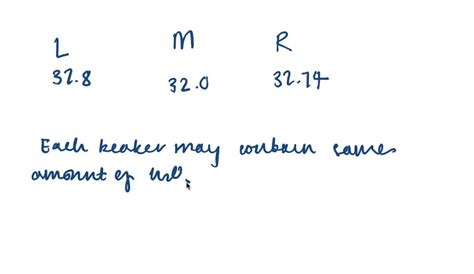 L M R
32.8 32.0 32.74
Each beaker may contain same
amount of H₂O.